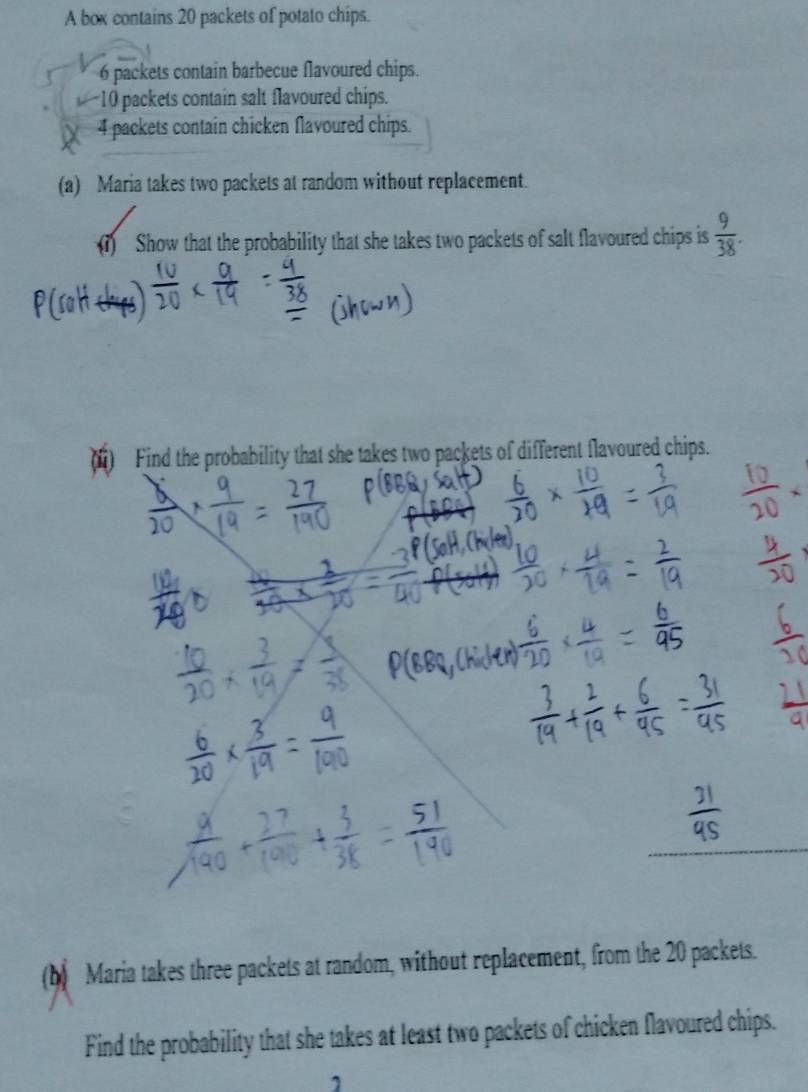 A box contains 20 packets of potato chips.
6 packets contain barbecue flavoured chips.
10 packets contain salt flavoured chips.
4 packets contain chicken flavoured chips.
(a) Maria takes two packets at random without replacement.
(i) Show that the probability that she takes two packets of salt flavoured chips is 9/38.
P(salt chips) 10/20 × 9/19 = 9/38 (shown)
(ii) Find the probability that she takes two packets of different flavoured chips.
6/20 × 9/19 = 27/190 P(BBQ, Salt) P(BBQ) 6/20 × 10/19 = 3/19 10/20 ×
= 3/40 P(Salt, Chicken) P(salt) 10/20 × 4/19 = 2/19 4/20
10/20 × 3/19 = 3/38 P(BBQ, Chicken) 6/20 × 4/19 = 6/95 6/20
6/20 × 3/19 = 9/190 3/19 + 2/19 + 6/95 = 31/95
9/190 + 27/190 + 3/38 = 51/190 31/95
(b) Maria takes three packets at random, without replacement, from the 20 packets.
Find the probability that she takes at least two packets of chicken flavoured chips.